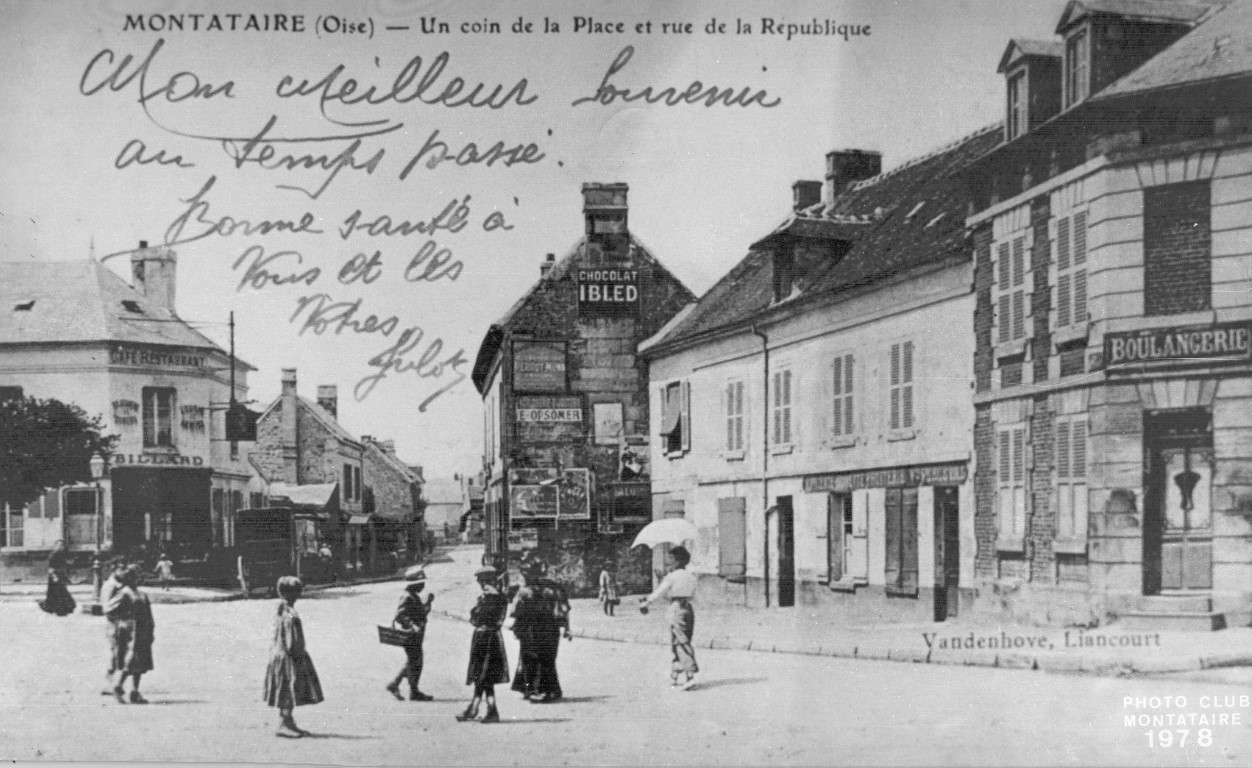 MONTATAIRE (Oise) — Un coin de la Place et rue de la République
Mon Meilleur Souvenir
au temps passé.
Bonne santé à
Vous et les
Vôtres
CHOCOLAT
IBLED
CAFÉ RESTAURANT
BILLARD
E. OPSOMER
BOULANGERIE
Vandenhove, Liancourt
PHOTO CLUB
MONTATAIRE
1978